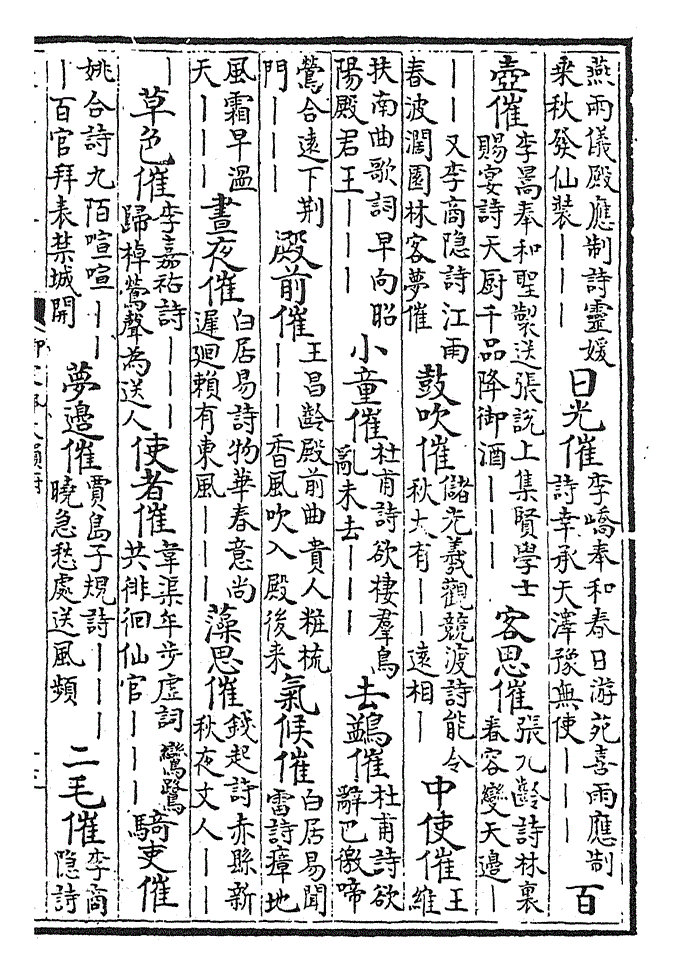 燕兩儀殿應制詩靈媛
乘秋發仙裝｜｜｜
日光催
李嶠奉和春日游苑喜雨應制
詩幸承天澤豫無使｜｜｜
百
壺催
李暠奉和聖製送張說上集賢學士
賜宴詩天厨千品降御酒｜｜｜
客思催
張九齡詩林裏
春容變天邊｜
｜｜
又李商隱詩江雨
春波濶園林客夢催
鼓吹催
儲光羲觀競渡詩能令
秋大有｜｜遠相｜
中使催
王
維
扶南曲歌詞早向昭
陽殿君王｜｜｜
小童催
杜甫詩欲棲羣鳥
亂未去｜｜｜
去鷁催
杜甫詩欲
辭巴徼啼
鶯合遠下荆
門｜｜｜
殿前催
王昌齡殿前曲貴人粧梳
｜｜｜香風吹入殿後来
氣候催
白居易聞
雷詩瘴地
風霜早溫
天｜｜｜
晝夜催
白居易詩物華春意尚
遲迴賴有東風｜｜｜
藻思催
錢起詩赤縣新
秋夜文人｜｜
｜
草色催
李嘉祐詩｜｜｜
歸棹鶯聲為送人
使者催
韋渠牟步虛詞鸞鷺
共徘徊仙官｜｜｜
騎吏催
姚合詩九陌喧喧｜｜
｜百官拜表禁城開
夢邊催
賈島子規詩｜｜｜
曉急愁處送風頻
二毛催
李商
隱詩